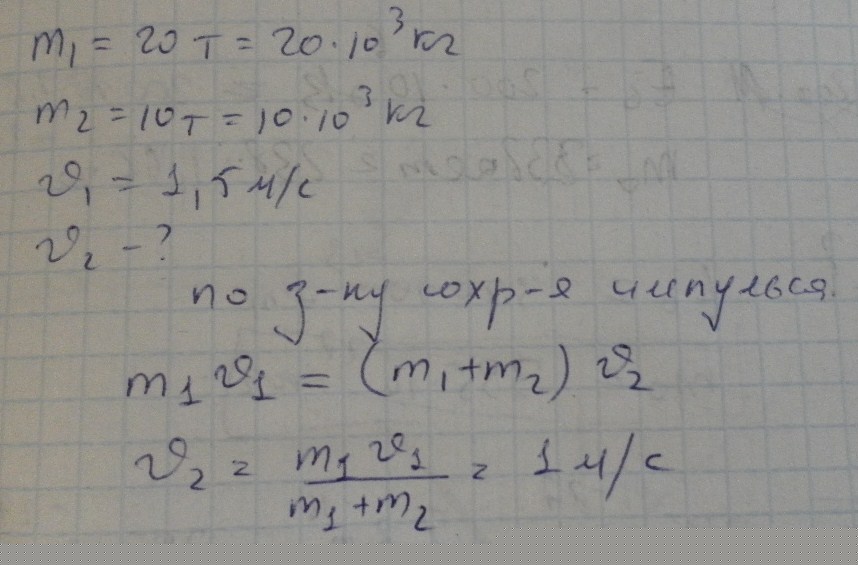 m₁ = 20 т = 20·10³ кг
m₂ = 10 т = 10·10³ кг
v₁ = 1,5 м/с
v₂ - ?
по з-ну сохр-я импульса.
m₁ v₁ = (m₁ + m₂) v₂
v₂ = m₁ v₁ / m₁ + m₂ = 1 м/с